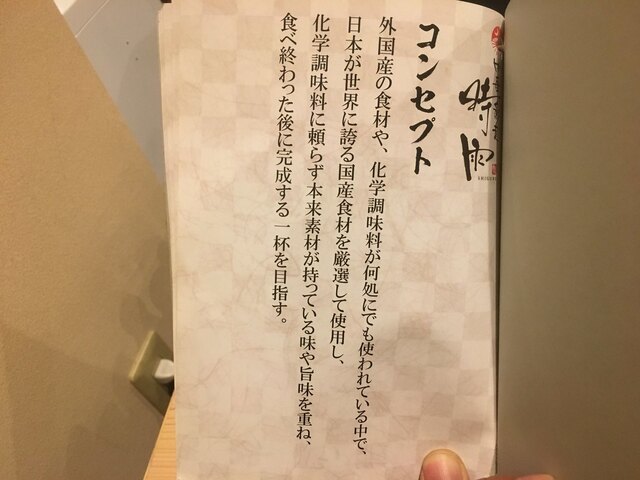 時雨
コンセプト
外国産の食材や、化学調味料が何処にでも使われている中で、
日本が世界に誇る国産食材を厳選して使用し、
化学調味料に頼らず本来素材が持っている味や旨味を重ね、
食べ終わった後に完成する一杯を目指す。